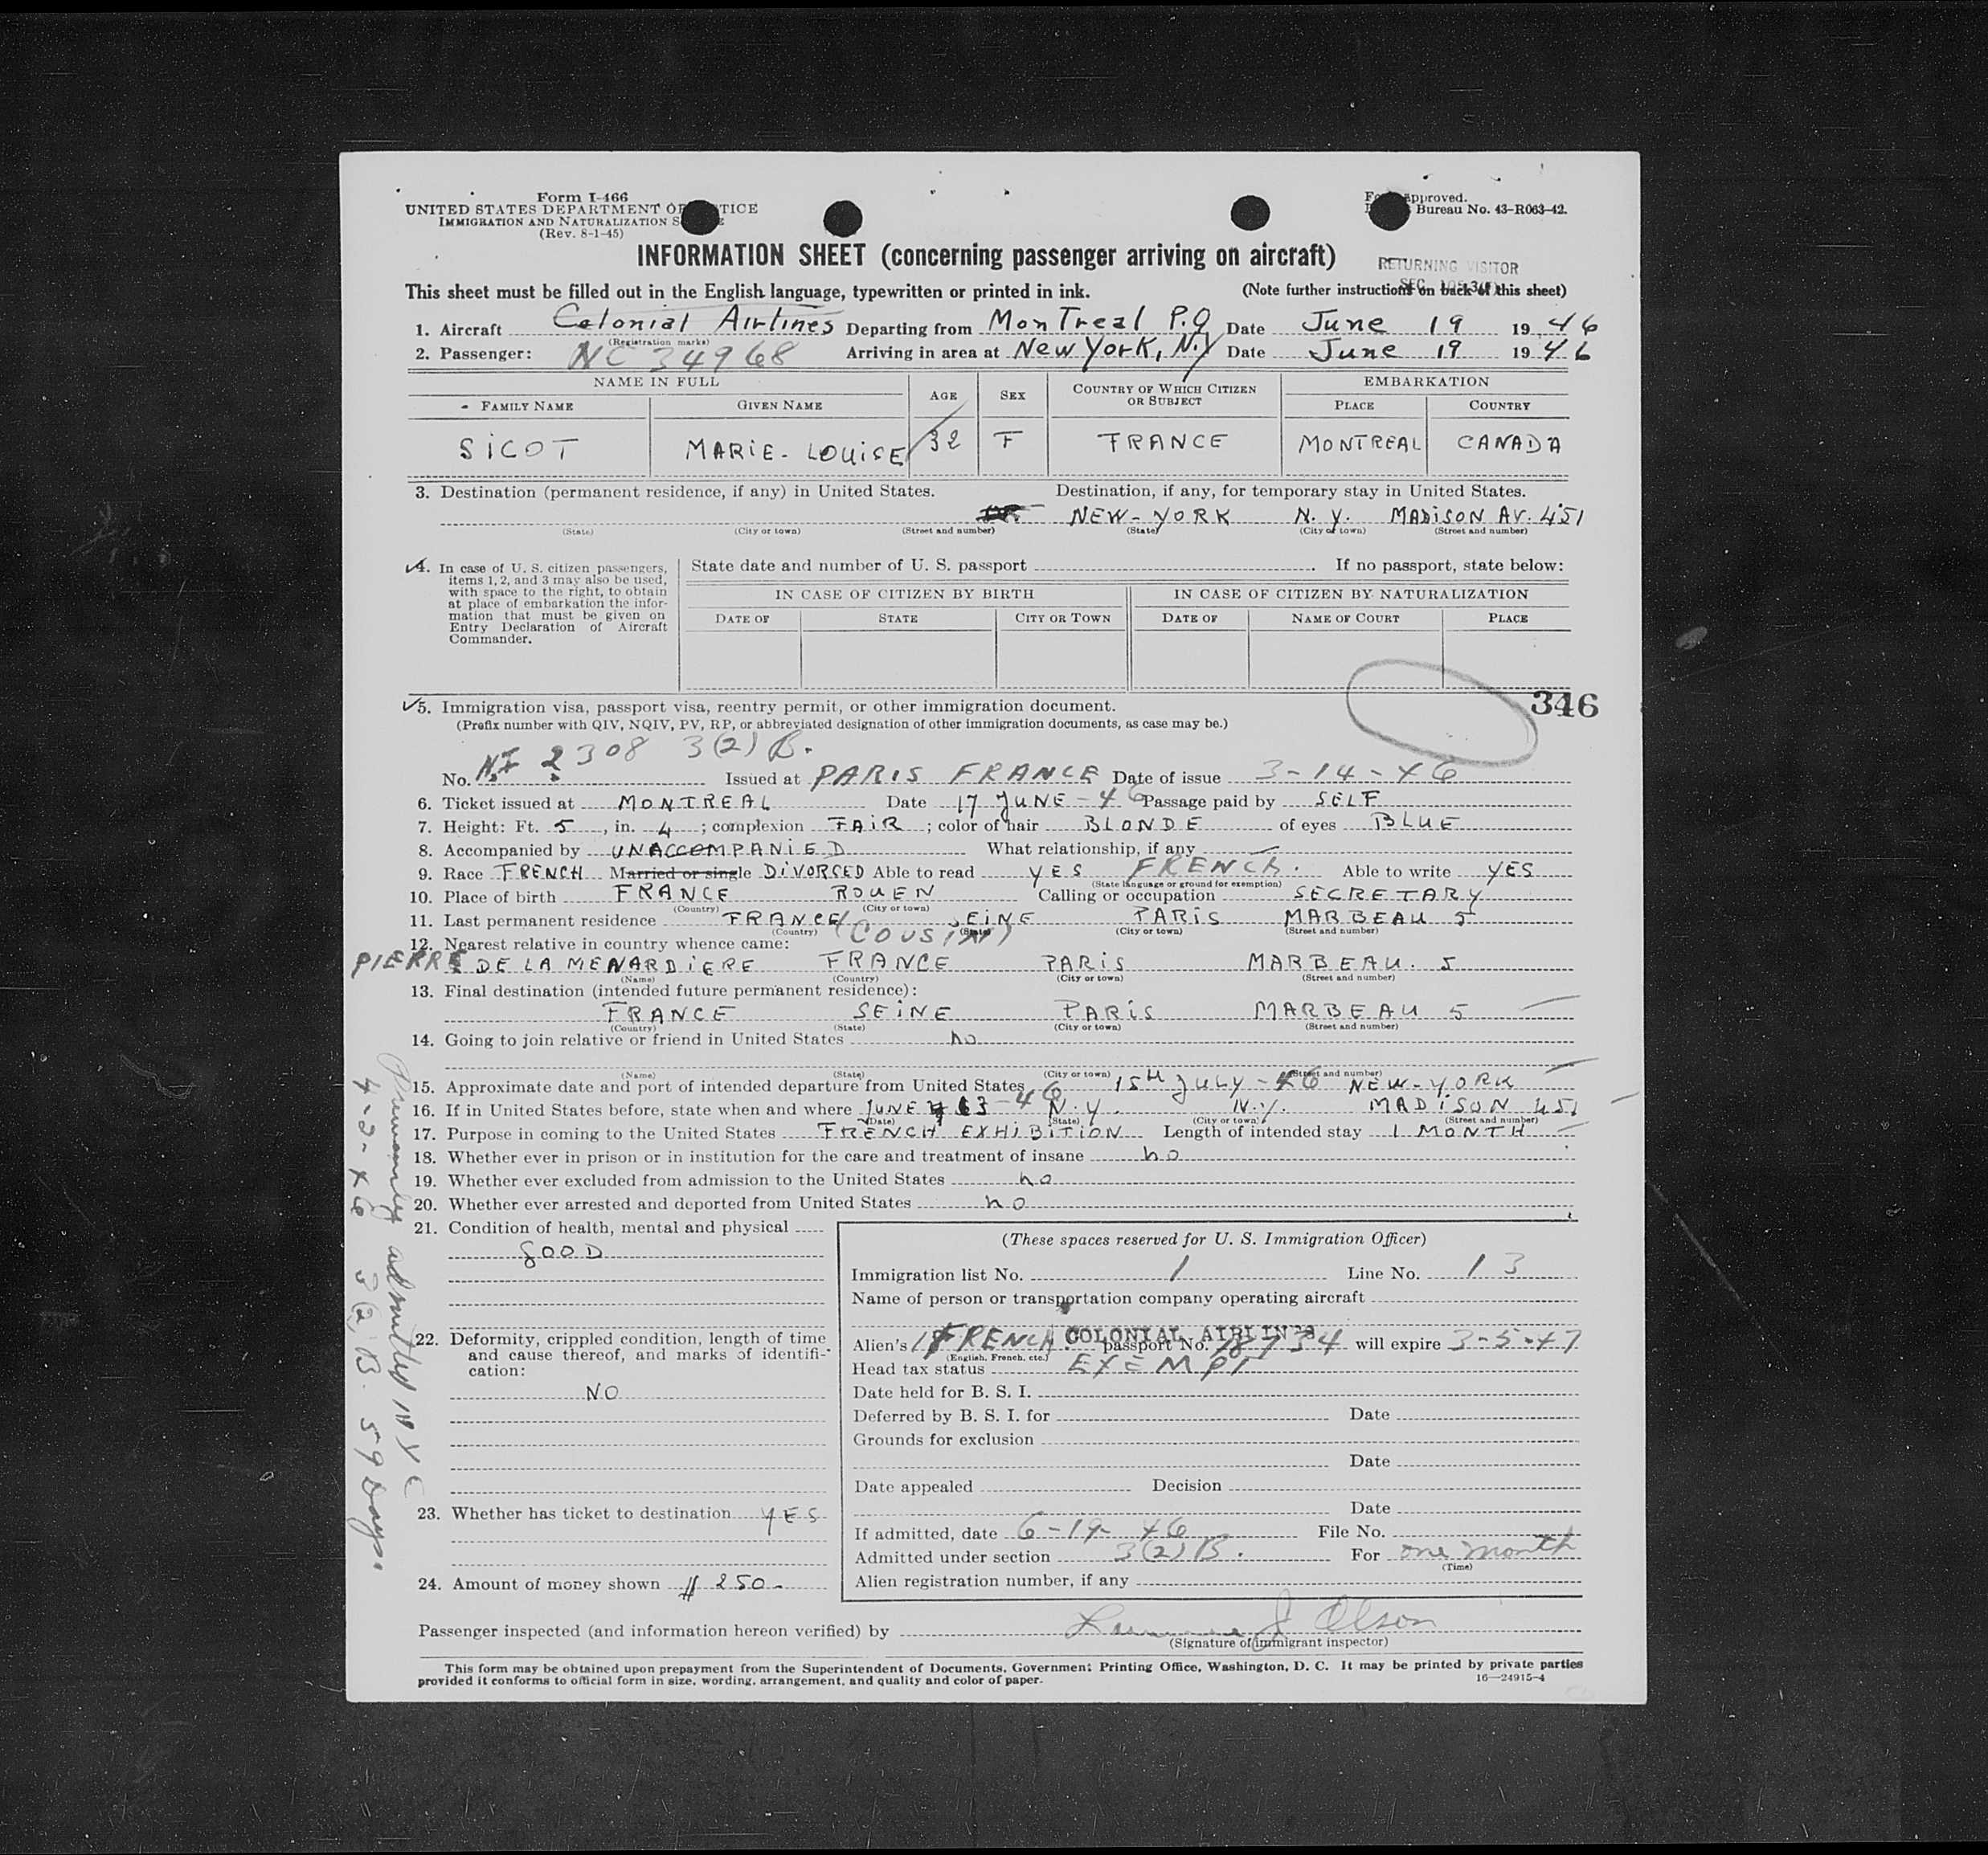 Form I-466
UNITED STATES DEPARTMENT OF JUSTICE
IMMIGRATION AND NATURALIZATION S
(Rev. 8-1-45)
Approved.
Bureau No. 43-R063-42.
INFORMATION SHEET (concerning passenger arriving on aircraft)
RETURNING VISITOR
This sheet must be filled out in the English language, typewritten or printed in ink.
(Note further instructions on back of this sheet)
1. Aircraft Colonial Airlines Departing from MonTreal P.Q Date June 19 1946
(Registration marks)
2. Passenger: NC 34968 Arriving in area at New York, N.Y Date June 19 1946
NAME IN FULL AGE SEX COUNTRY OF WHICH CITIZEN OR SUBJECT EMBARKATION
FAMILY NAME GIVEN NAME PLACE COUNTRY
SICOT MARIE-LOUISE 32 F FRANCE MONTREAL CANADA
3. Destination (permanent residence, if any) in United States. Destination, if any, for temporary stay in United States.
NEW-YORK N.Y. MADISON AV. 451
(State) (City or town) (Street and number) (State) (City or town) (Street and number)
4. In case of U. S. citizen passengers, items 1, 2, and 3 may also be used, with space to the right, to obtain at place of embarkation the information that must be given on Entry Declaration of Aircraft Commander.
State date and number of U. S. passport . If no passport, state below:
IN CASE OF CITIZEN BY BIRTH IN CASE OF CITIZEN BY NATURALIZATION
DATE OF STATE CITY OR TOWN DATE OF NAME OF COURT PLACE
346
5. Immigration visa, passport visa, reentry permit, or other immigration document.
(Prefix number with QIV, NQIV, PV, RP, or abbreviated designation of other immigration documents, as case may be.)
No. 2308 3(2) B. Issued at PARIS FRANCE Date of issue 3-14-46
6. Ticket issued at MONTREAL Date 17 JUNE-46 Passage paid by SELF
7. Height: Ft. 5, in. 4; complexion FAIR; color of hair BLONDE of eyes BLUE
8. Accompanied by UNACCOMPANIED What relationship, if any
9. Race FRENCH Married or single DIVORCED Able to read YES FRENCH. Able to write YES
(State language or ground for exemption)
10. Place of birth FRANCE ROUEN Calling or occupation SECRETARY
(Country) (City or town)
11. Last permanent residence FRANCE SEINE PARIS MARBEAU 5
(Country) (State) (City or town) (Street and number)
12. Nearest relative in country whence came: (COUSIN)
PIERRE DE LA MENARDIERE FRANCE PARIS MARBEAU. 5
(Name) (Country) (City or town) (Street and number)
13. Final destination (intended future permanent residence):
FRANCE SEINE PARIS MARBEAU 5
(Country) (State) (City or town) (Street and number)
14. Going to join relative or friend in United States no
(Name) (State) (City or town) (Street and number)
15. Approximate date and port of intended departure from United States 15th JULY-46 NEW-YORK
16. If in United States before, state when and where JUNE 13-46 N.Y. N.Y. MADISON 451
(Date) (State) (City or town) (Street and number)
17. Purpose in coming to the United States FRENCH EXHIBITION Length of intended stay 1 MONTH
18. Whether ever in prison or in institution for the care and treatment of insane no
19. Whether ever excluded from admission to the United States no
20. Whether ever arrested and deported from United States no
21. Condition of health, mental and physical
GOOD
22. Deformity, crippled condition, length of time and cause thereof, and marks of identification:
NO
23. Whether has ticket to destination YES
24. Amount of money shown $ 250-
(These spaces reserved for U. S. Immigration Officer)
Immigration list No. 1 Line No. 13
Name of person or transportation company operating aircraft
COLONIAL AIRLINES
Alien's FRENCH passport No. 18734 will expire 3-5-47
(English, French, etc.)
Head tax status EXEMPT
Date held for B. S. I.
Deferred by B. S. I. for Date
Grounds for exclusion
Date
Date appealed Decision
Date
If admitted, date 6-19-46 File No.
Admitted under section 3(2)B. For one month
(Time)
Alien registration number, if any
Passenger inspected (and information hereon verified) by J Olson
(Signature of immigrant inspector)
This form may be obtained upon prepayment from the Superintendent of Documents, Government Printing Office, Washington, D. C. It may be printed by private parties
provided it conforms to official form in size, wording, arrangement, and quality and color of paper.
16—24915-4
admitted N Y C
4-2-46 3(2)B. 59 Days.